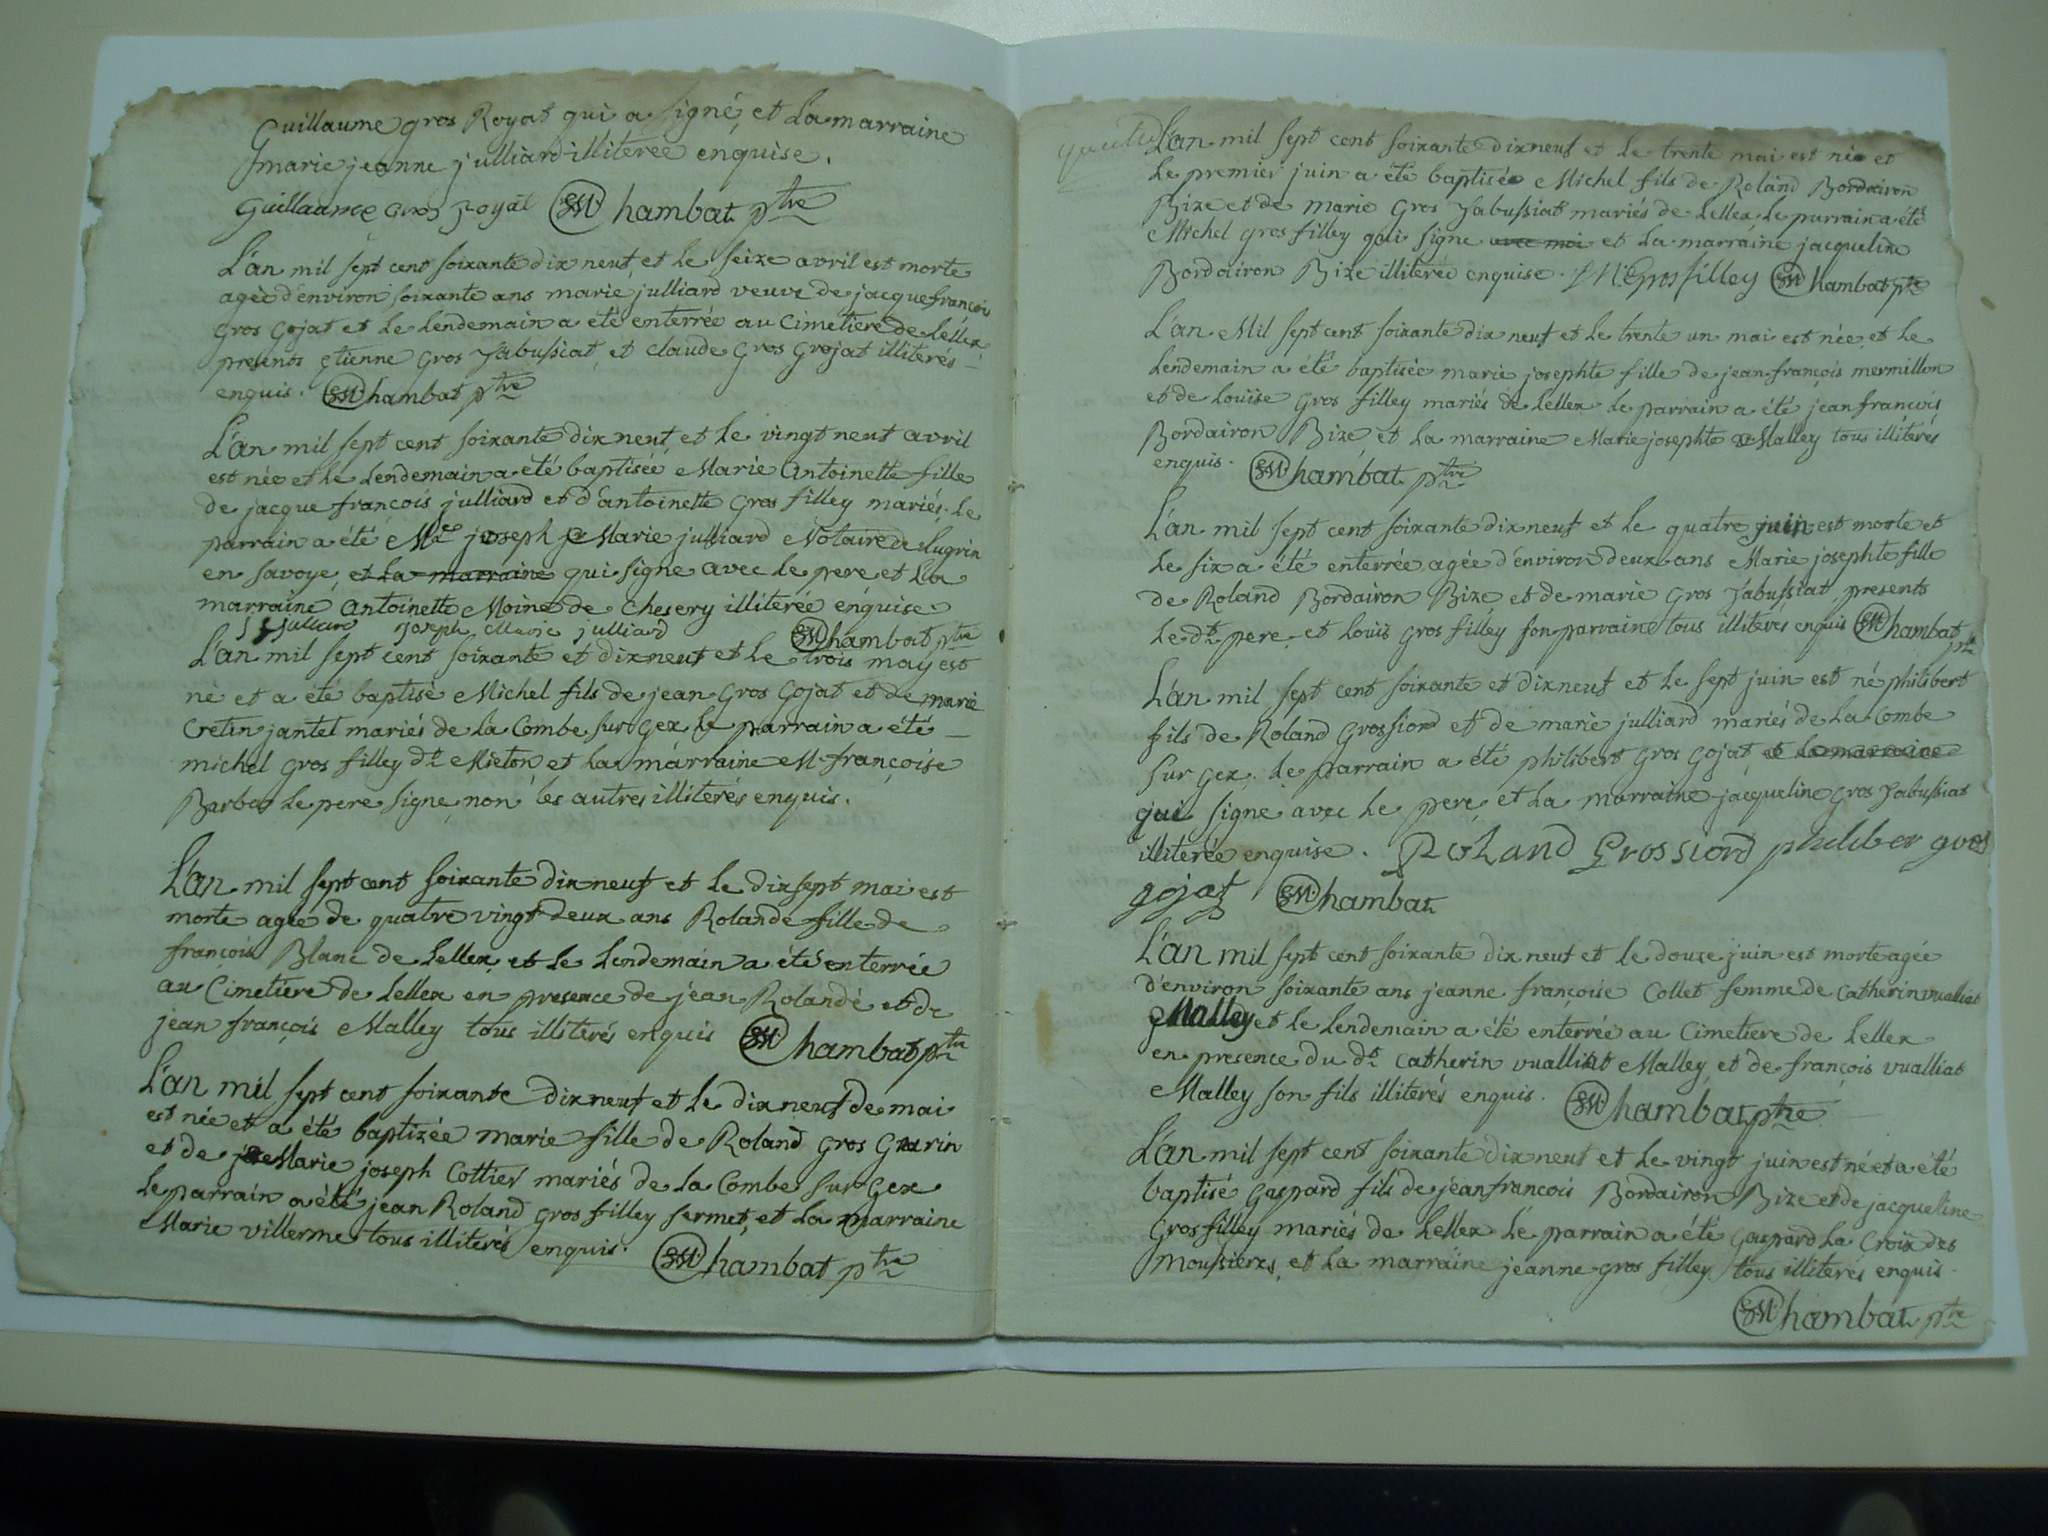 Guillaume gros Royat qui a signé, et La marraine
marie jeanne julliard illiterée enquise.
Guillaume gros royat Chambat ptre
L'an mil sept cent soixante dix neuf, et le seize avril est morte
agée d'environ soixante ans marie julliard veuve de jacque françois
Gros Gojat et le lendemain a été enterrée au Cimetiere de Lellex
presents etienne Gros Jabussiat, et claude Gros Gojat illiterés
enquis. Chambat ptre
L'an mil sept cent soixante dix neuf, et le vingt neuf avril
est née et le Lendemain a été baptisée Marie Antoinette fille
de jacque françois julliard et d'antoinette Gros filley mariés. le
parrain a été Me joseph Marie julliard Notaire de Lugrin
en Savoye, et la marraine qui signe avec le pere et La
marraine Antoinette Moine de Chesery illiterée enquise
julliard joseph Marie julliard Chambat ptre
L'an mil sept cent soixante et dix neuf et le trois may est
né et a été baptisé Michel fils de jean Gros Gojat et de marie
Cretin jantet mariés de la Combe sur Gex le parrain a été
michel Gros filley dt Mieton et la marraine M. françoise
Barbe le pere signe, non les autres illiterés enquis.
L'an mil sept cent soixante dix neuf et le dix sept mai est
morte agée de quatre vingt deux ans Rolande fille de
françois Blanc de Lellex, et le lendemain a été enterrée
au Cimetiere de Lellex en presence de jean Rolandé et de
jean françois Malley tous illiterés enquis Chambat ptre
L'an mil sept cent soixante dix neuf et le dix neuf de mai
est née et a été baptizée marie fille de Roland Gros Gurin
et de Marie joseph Cottier mariés de la Combe sur Gex
le parrain a été jean Roland Gros filley fermet, et la marraine
Marie villerme tous illiterés enquis. Chambat ptre
L'an mil sept cent soixante dix neuf et le trente mai est né et
le premier juin a été baptisé Michel fils de Roland Bordairon
Bize et de marie Gros Jabussiat mariés de Lellex le parrain a été
Michel Gros filley qui signe avec moi et la marraine jacqueline
Bordairon Bize illiterée enquise. M Grosfilley Chambat ptre
L'an Mil sept cent soixante dix neuf et le trente un mai est née, et le
lendemain a été baptisée marie josephte fille de jean françois mermillon
et de Louise Gros filley mariés de Lellex le parrain a été jean françois
Bordairon Bize et la marraine Marie josephte Malley tous illiterés
enquis. Chambat ptre
L'an mil sept cent soixante dix neuf et le quatre juin est morte et
le six a été enterrée agée d'environ deux ans Marie josephte fille
de Roland Bordairon Bize et de marie Gros Jabussiat, presents
le dt pere, et Louis Gros filley son parrain tous illiterés enquis Chambat
ptre
L'an mil sept cent soixante et dix neuf et le sept juin est né philibert
fils de Roland Grossiord et de marie julliard mariés de la Combe
sur Gex. le parrain a été philibert Gros Gojat, et la marraine
qui signe avec le pere, et la marraine jacqueline Gros Jabussiat
illiterée enquise. Roland Grossiord philiber gros
gojat Chambat
L'an mil sept cent soixante dix neuf et le douze juin est morte agée
d'environ soixante ans jeanne françoise Collet femme de Catherin vualliat
Malley et le lendemain a été enterrée au Cimetiere de Lellex
en presence du dt Catherin vualliat Malley, et de françois vualliat
Malley son fils illiterés enquis. Chambat ptre
L'an mil sept cent soixante dix neuf et le vingt juin est né et a été
baptisé Gaspard fils de jean francois Bordairon Bize et de jacqueline
Gros filley mariés de Lellex le parrain a été Gaspard La Croix des
Moussieres, et la marraine jeanne Gros filley tous illiterés enquis.
Chambat ptre